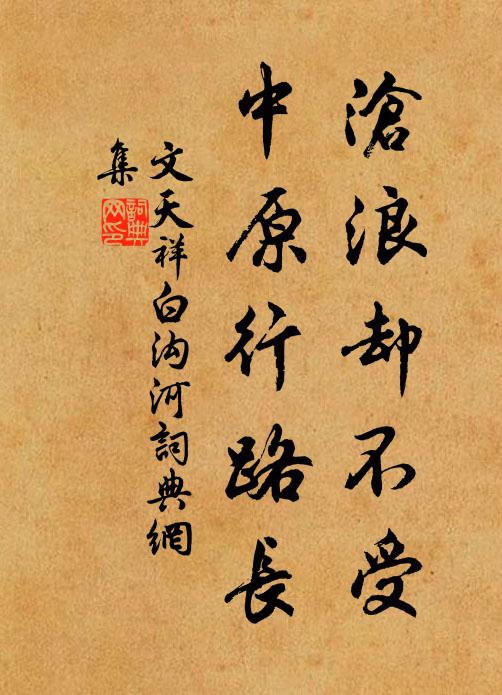 滄浪却不受
中原行路長
文天祥白沟河詞典網
集
詞典
网印